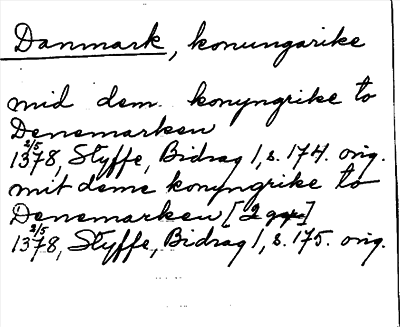 Danmark, konungarike
mid dem. konyngrike to
Denemarken
1378 2/5, Styffe, Bidrag 1, s. 174. orig.
mit deme konyngrike to
Denemarken [2 ggr.]
1378 2/5, Styffe, Bidrag 1, s. 175. orig.